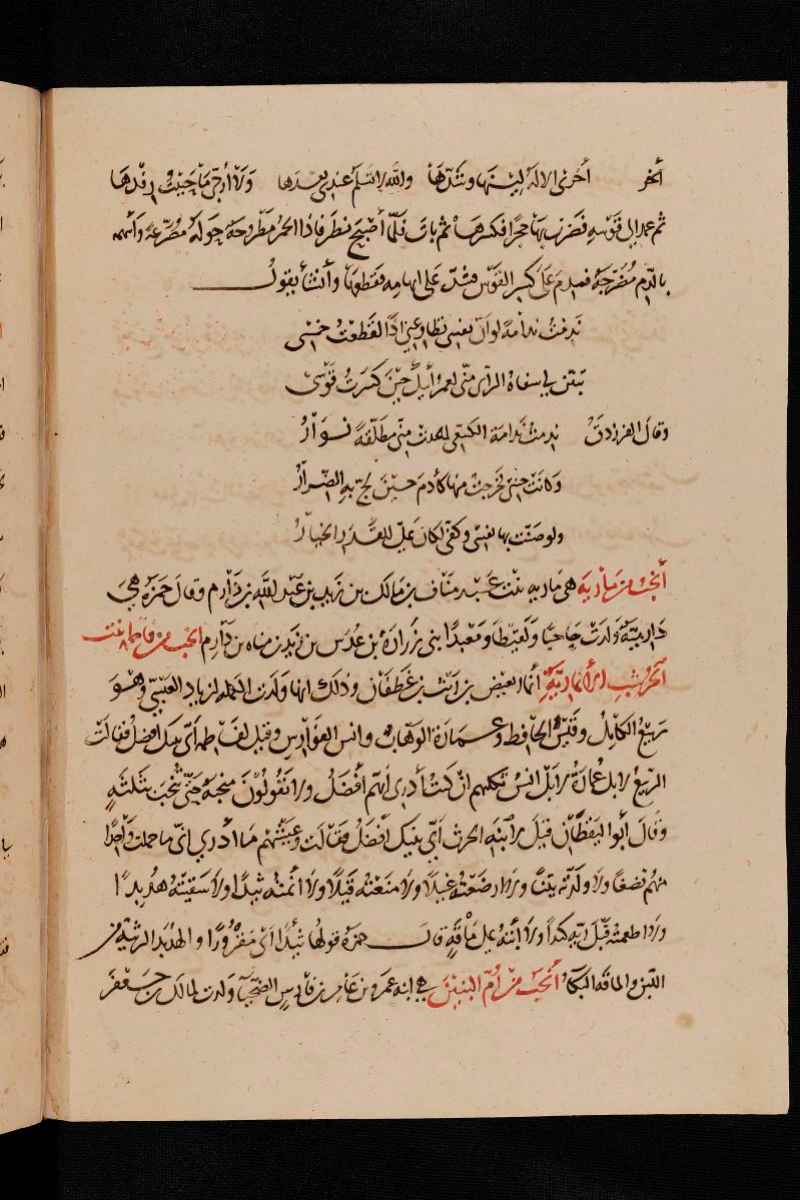 أخر أخزى الاله لينها وشدها والله لا تسلم عندي بعدها ولا أرجى ما حييت رفدها
ثم عمد الى قوسه فضرب بها حجرا فكسرها ثم بات فلما أصبح نظر فاذا الحمر مطروحة حوله مصرعة وأسهمه
بالدم مضرجة فندم على كسر القوس فشد على ابهامه فقطعها وأنشأ يقول
ندمت ندامة لو ان نفسى تطاوعني اذا لقطعت خمسى
تبين لي سفاه الراى منى لعمر أبيك حين كسرت قوسى
وقال الفرزدق ندمت ندامة الكسعى لما غدت منى مطلقة نوار
وكانت جنتى فخرجت منها كآدم حين لج به الضرار
ولو ضنت بها نفسى وكفى لكان على للقدر الخيار
أنجب من مارية هى مارية بنت عبد مناف بن مالك بن زيد بن عبد الله بن دارم وقال حمزة هى
دارمية ولدت حاجبا ولقيطا ومعبدا بنى زرارة بن عدس بن زيد بن مناه بن دارم أنجب من فاطمة بنت
الخرشب الأنمارية أنمار بغيض بن ريث بن غطفان وذلك انها ولدت الكملة لزياد العبسى وهو
ربيع الكامل وقيس الحافظ وعمارة الوهاب وانس الفوارس وقيل لفاطمه أى بنيك افضل فقالت
الربيع لا بل عمارة لا بل انس ثكلتهم ان كنت أدرى أيهم أفضل ولا تقولون منجبة حتى تنجب بثلثة
وقال أبو اليقظان قيل لابنة الخرشب أى بنيك افضل فقالت وعيشهم ما ادرى انى ما حملت واحدا
منهم تضعا ولا ولدته يتنا ولا ارضعته غيلا ولا منعته قيلا ولا أنمته ثئدا ولا سقيته هدبدا
ولا اطعمته قبل رئة كبدا ولا أبته على مأقة قال حمزة قولها ثئدا اى مقرورا والهدبد الرثية من
اللبن والماقة البكا أنجب من أم البنين هى ابنة عمرو بن عامر بن فارس الضحيا ولدت لمالك بن جعفر